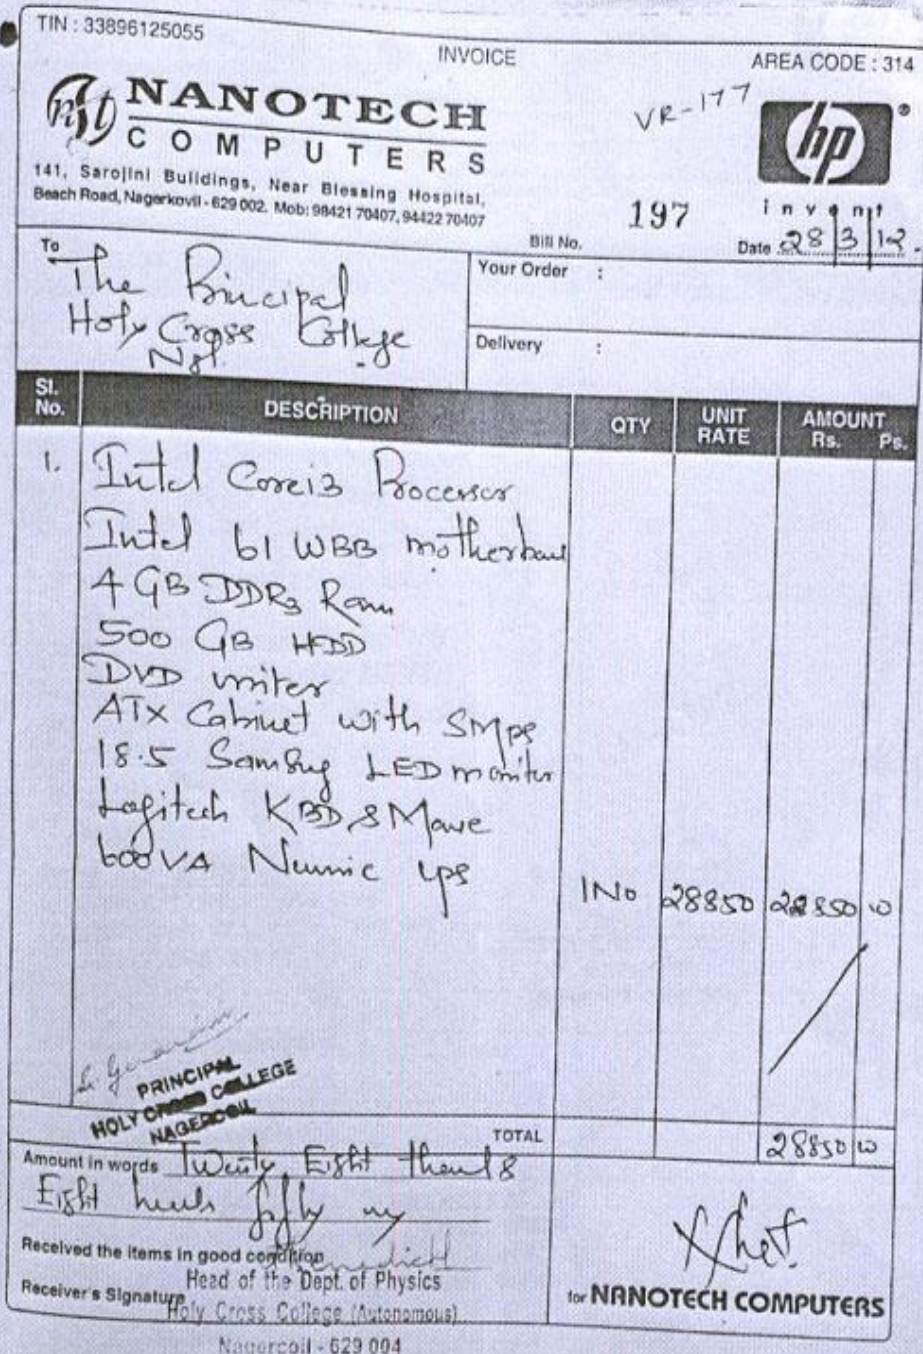 TIN : 33896125055
INVOICE
AREA CODE : 314
nt
NANOTECH
COMPUTERS
VR-177
hp
®
invent
141, Sarojini Buildings, Near Blessing Hospital,
Beach Road, Nagerkovil - 629 002. Mob: 98421 70407, 94422 70407
Bill No. 197
Date 28/3/12
To
The Principal
Holy Cross College
Ngl.
Your Order :
Delivery :
Sl. No. DESCRIPTION QTY UNIT RATE AMOUNT Rs. Ps.
1. Intel Corei3 Processor
Intel 61 WBB
4 GB DDR3 Ram
500 GB HDD
DVD writer
ATX Cabinet with SMPS
18.5 LED monitor
Logitech KBD & Mouse
600VA ups
1No 28850 28850
PRINCIPAL
HOLY CROSS COLLEGE
NAGERCOIL
TOTAL 28850
Amount in words Twenty Eight &
Eight fifty
Received the items in good condition
Receiver's Signature
Head of the Dept. of Physics
Holy Cross College (Autonomous)
Nagercoil - 629 004
for NANOTECH COMPUTERS